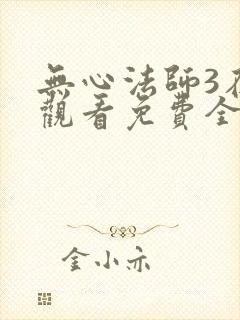 無心法師3在
觀看免費全
金小亦